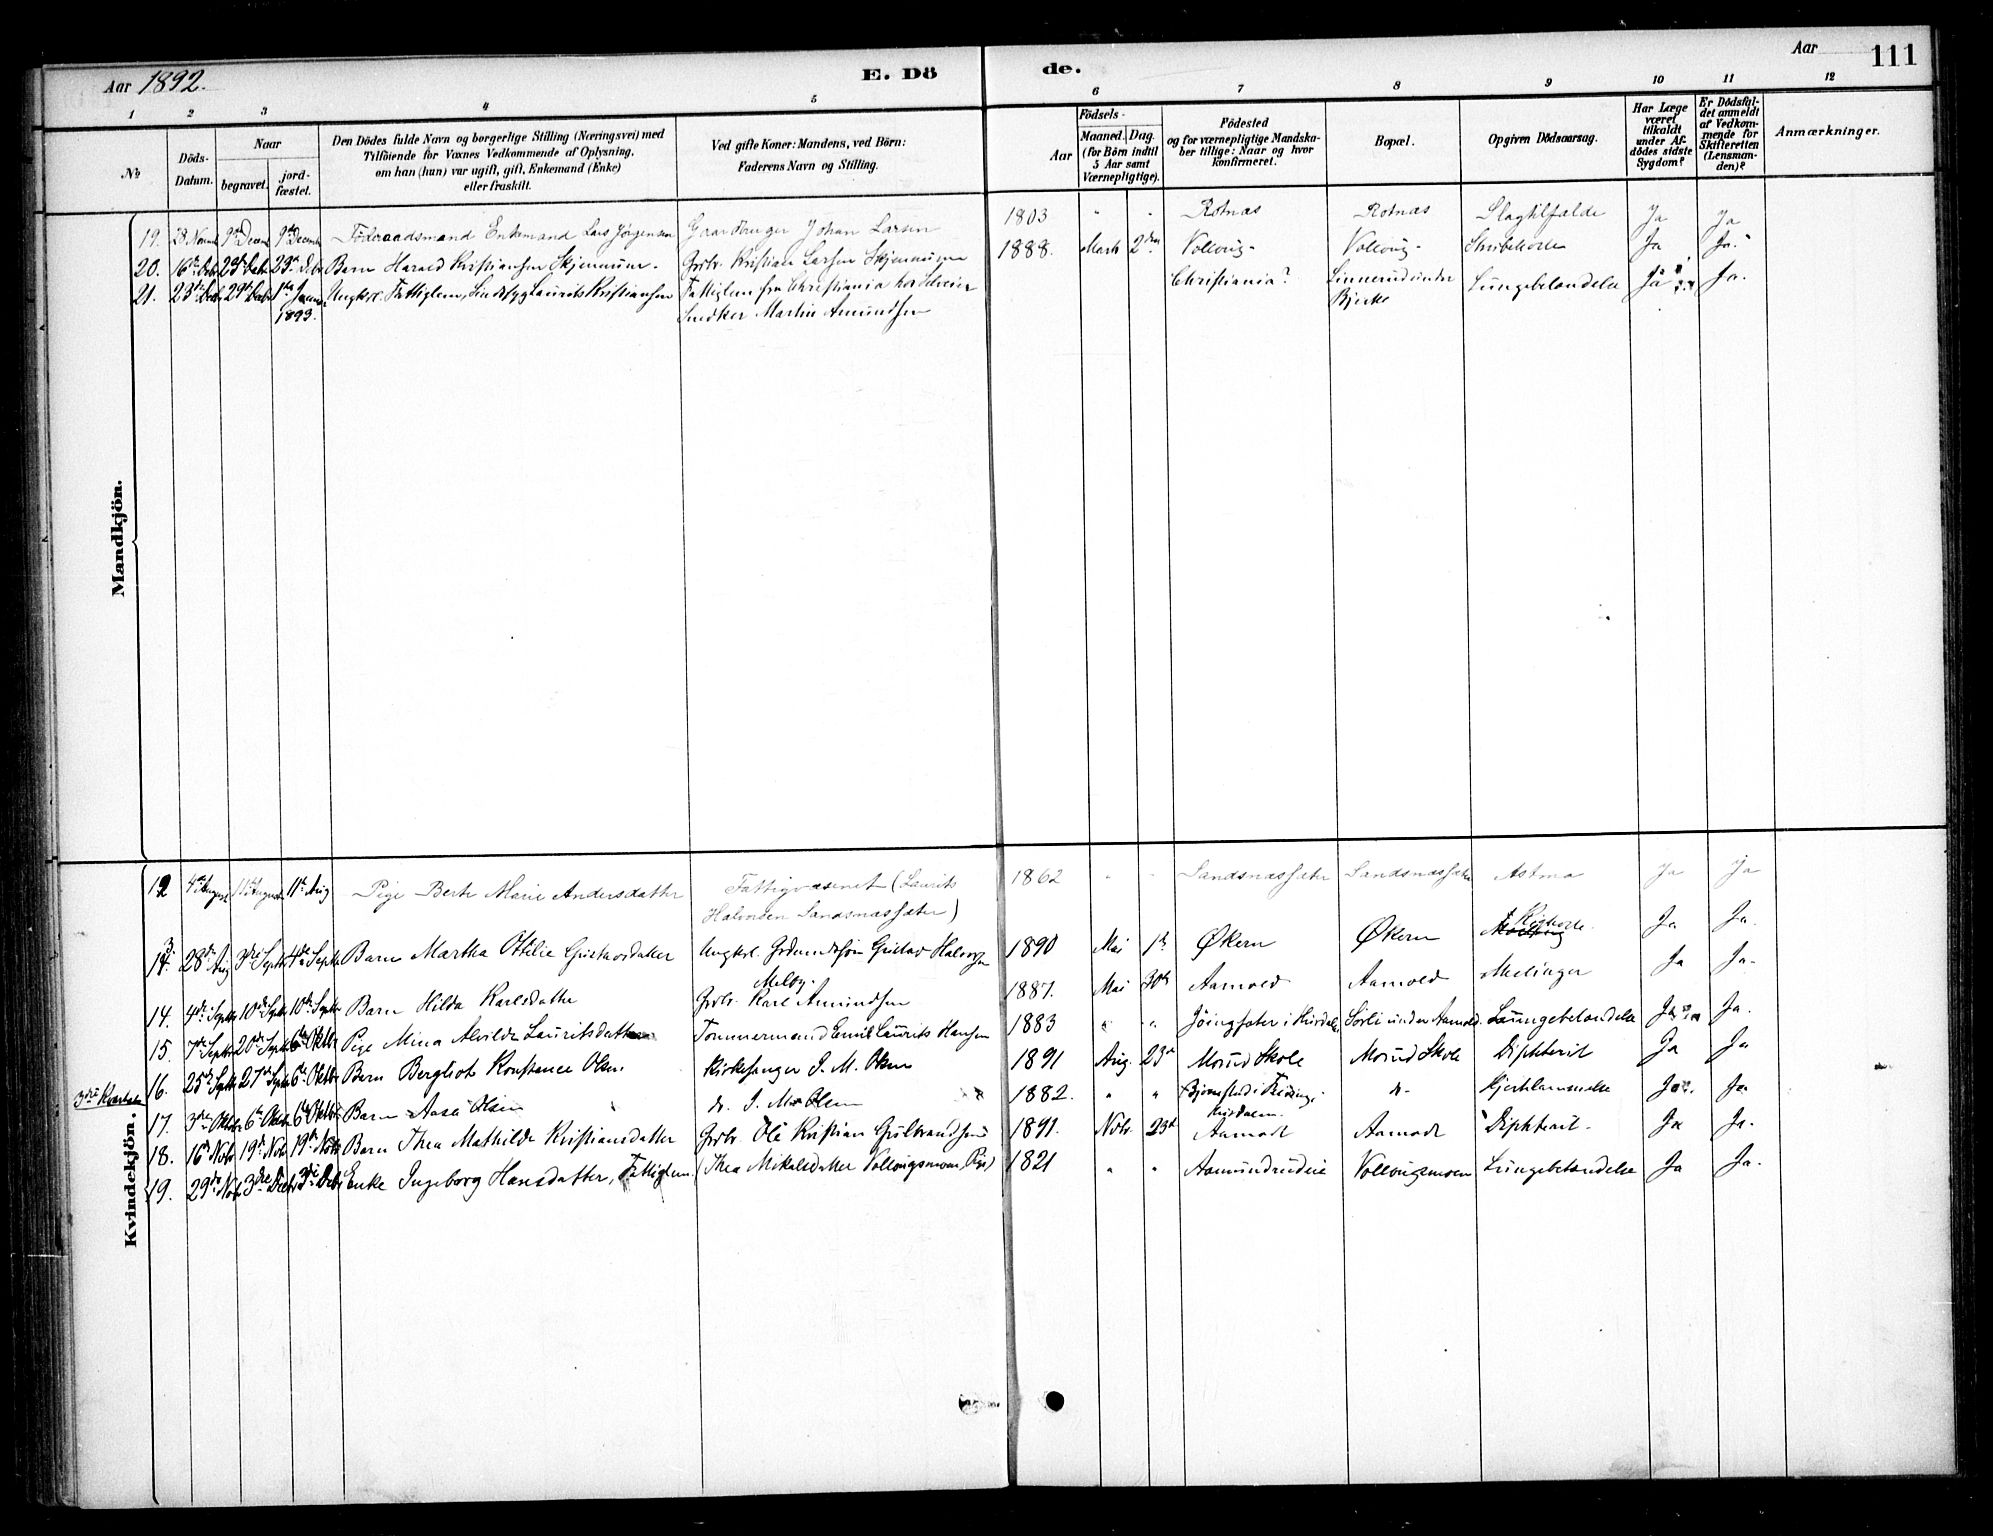 Aar 1892.
E. Dö
de.
Aar
111
1 2 3 4 5 6 7 8 9 10 11 12
No
Döds-
Datum.
Naar
begravet.
jord-
fæstet.
Den Dödes fulde Navn og borgerlige Stilling (Næringsvei) med
Tilföiende för Voxnes Vedkommende af Oplysning,
om han (hun) var ugift, gift, Enkemand (Enke)
eller fraskilt.
Ved gifte Koner: Mandens, ved Börn:
Faderens Navn og Stilling.
Födsels-
Aar
Maaned. Dag.
(for Börn indtil
5 Aar samt
Værnepligtige).
Födested
og for værnepligtige Mandska-
ber tillige: Naar og hvor
konfirmeret.
Bopæl.
Opgiven Dödsaarsag.
Har Læge
været
tilkaldt
under Af-
dödes sidste
Sygdom?
Er Dödsfal-
det anmeldt
af Vedkom-
mende for
Skifteretten
(Lensman-
den)?
Anmærkninger.
Mandkjön.
19. 28. Novemb 9de Decemb 9de Decemb Föderaadsmand Enkemand Lars Jörgensen Gaardbruger Johan Larsen 1803 " " Rotnæs Rotnæs Slagtilfælde Ja Ja
20. 16de Debr 23de Debr 29de Debr Barn Harald Kristiansen Skjennum. Grdbr. Kristian Larsen Skjennum 1888. Marts 2den Vollaug Vollaug Strubehoste Ja Ja.
21. 23de Debr 29de Debr 1ste Janr Ungkrl. Fattiglem, Sindssyg Laurits Kristiansen Fattiglem fra Christiania hos Selveier Christiania? Linnerud under Lungebetændelse Ja Ja.
1893.
Snedker Martin Amundsen
Bjerke
Kvindekjön.
12 4de August 11te August 11te Aug Pige Berte Marie Andersdatter Fattigvæsenet (Laurits 1862 " " Sandsnæssæter Sandsnæssæter Astma Ja Ja
Halvorsen Sandsnæssæter)
13 28de Aug 3die Septbr 4de Septbr Barn Martha Otilie Gustavsdatter Ungkrl. Grdmandssön Gustav Halvorsen 1890 Mai 1ste Økern Økern Kighoste Ja Ja.
Melby
14. 4de Septbr 10de Septbr 10de Septbr Barn Hilda Karlsdatter Grdbr. Karl Amundsen 1887. Mai 30te Aamold Aamold Ja Ja.
15. 7de Septbr 20de Septbr 6te Oktbr Pige Mina Alvilde Lauritsdatter Tömmermand Emil Laurits Hansen 1883 " " i Hurdalen Sörli under Aamold. Lungebetændelse Ja Ja.
16. 25de Septbr 27de Septbr 6te Oktbr Barn Bergliot Konstance Olsen Kirkesanger I. M. Olsen 1891 Aug. 23de Morud Skole Morud Skole Diphterit Ja Ja
3die Kvartal
17. 3die Oktbr 6te Oktbr 6te Oktbr Barn Aasta Olsen do. I. M. Olsen 1882. " " do. Hjertelammelse Ja Ja
Hurdalen
18. 16de Novbr 19de Novbr 19de Novbr Barn Thea Mathilde Kristiansdatter Grdbr. Ole Kristian Gulbrandsen 1891. Novbr. 23de Aamodt Aamodt Diphterit. Ja Ja.
19. 29de Novbr 3die Debr 3die Debr Enke Ingeborg Hansdatter, Fattiglem (Thea Mikalsdatter Vollaugsmoen, Pige) 1821 " " Aamundrudeie Vollaugsmoen Lungebetændelse Ja Ja.